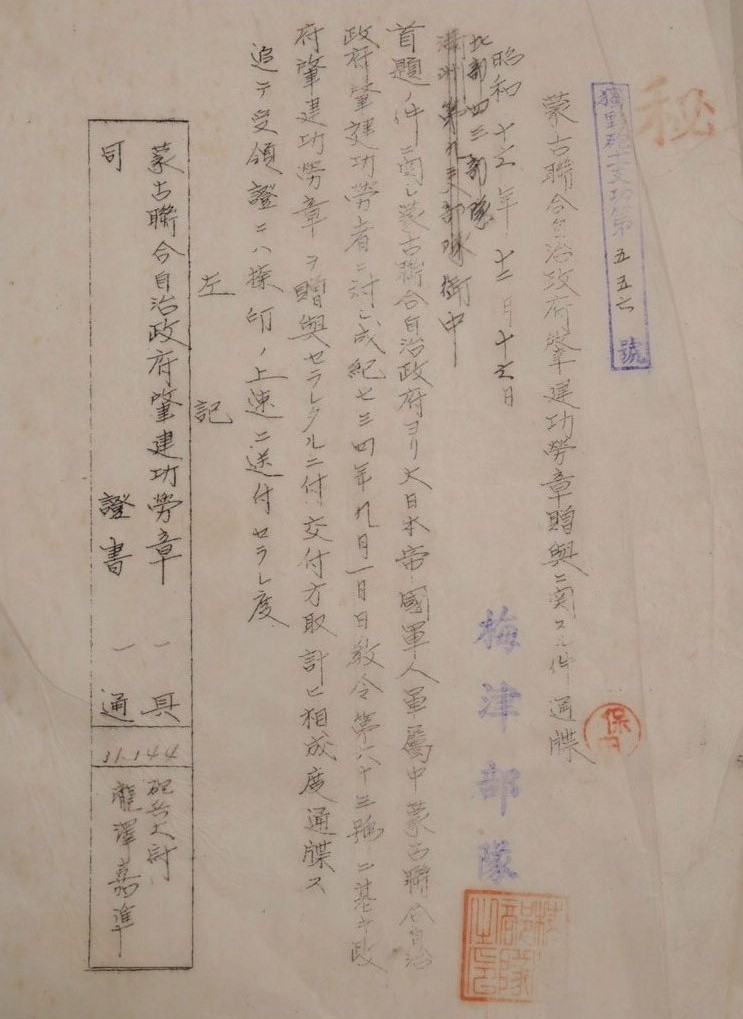 秘
五五六號
蒙古聯合自治政府肇建功勞章贈與ニ関スル件通牒
保
昭和十 年十二月十 日
梅津部隊
北部四三部隊
部隊御中
首題ノ件ニ関シ蒙古聯合自治政府ヨリ大日本帝國軍人軍属中蒙古聯合自治
政府肇建功勞者ニ対シ成紀七三四年九月一日敕令第六十三號ニ基キ政
府肇建功勞章ヲ贈與セラレタルニ付交付方取計ヒ相成度通牒ス
追テ受領證ニハ捺印ノ上速ニ送付セラレ度
左記
蒙古聯合自治政府肇建功勞章 一具
司 證書 一通
11144
砲兵大尉
瀧澤嘉準